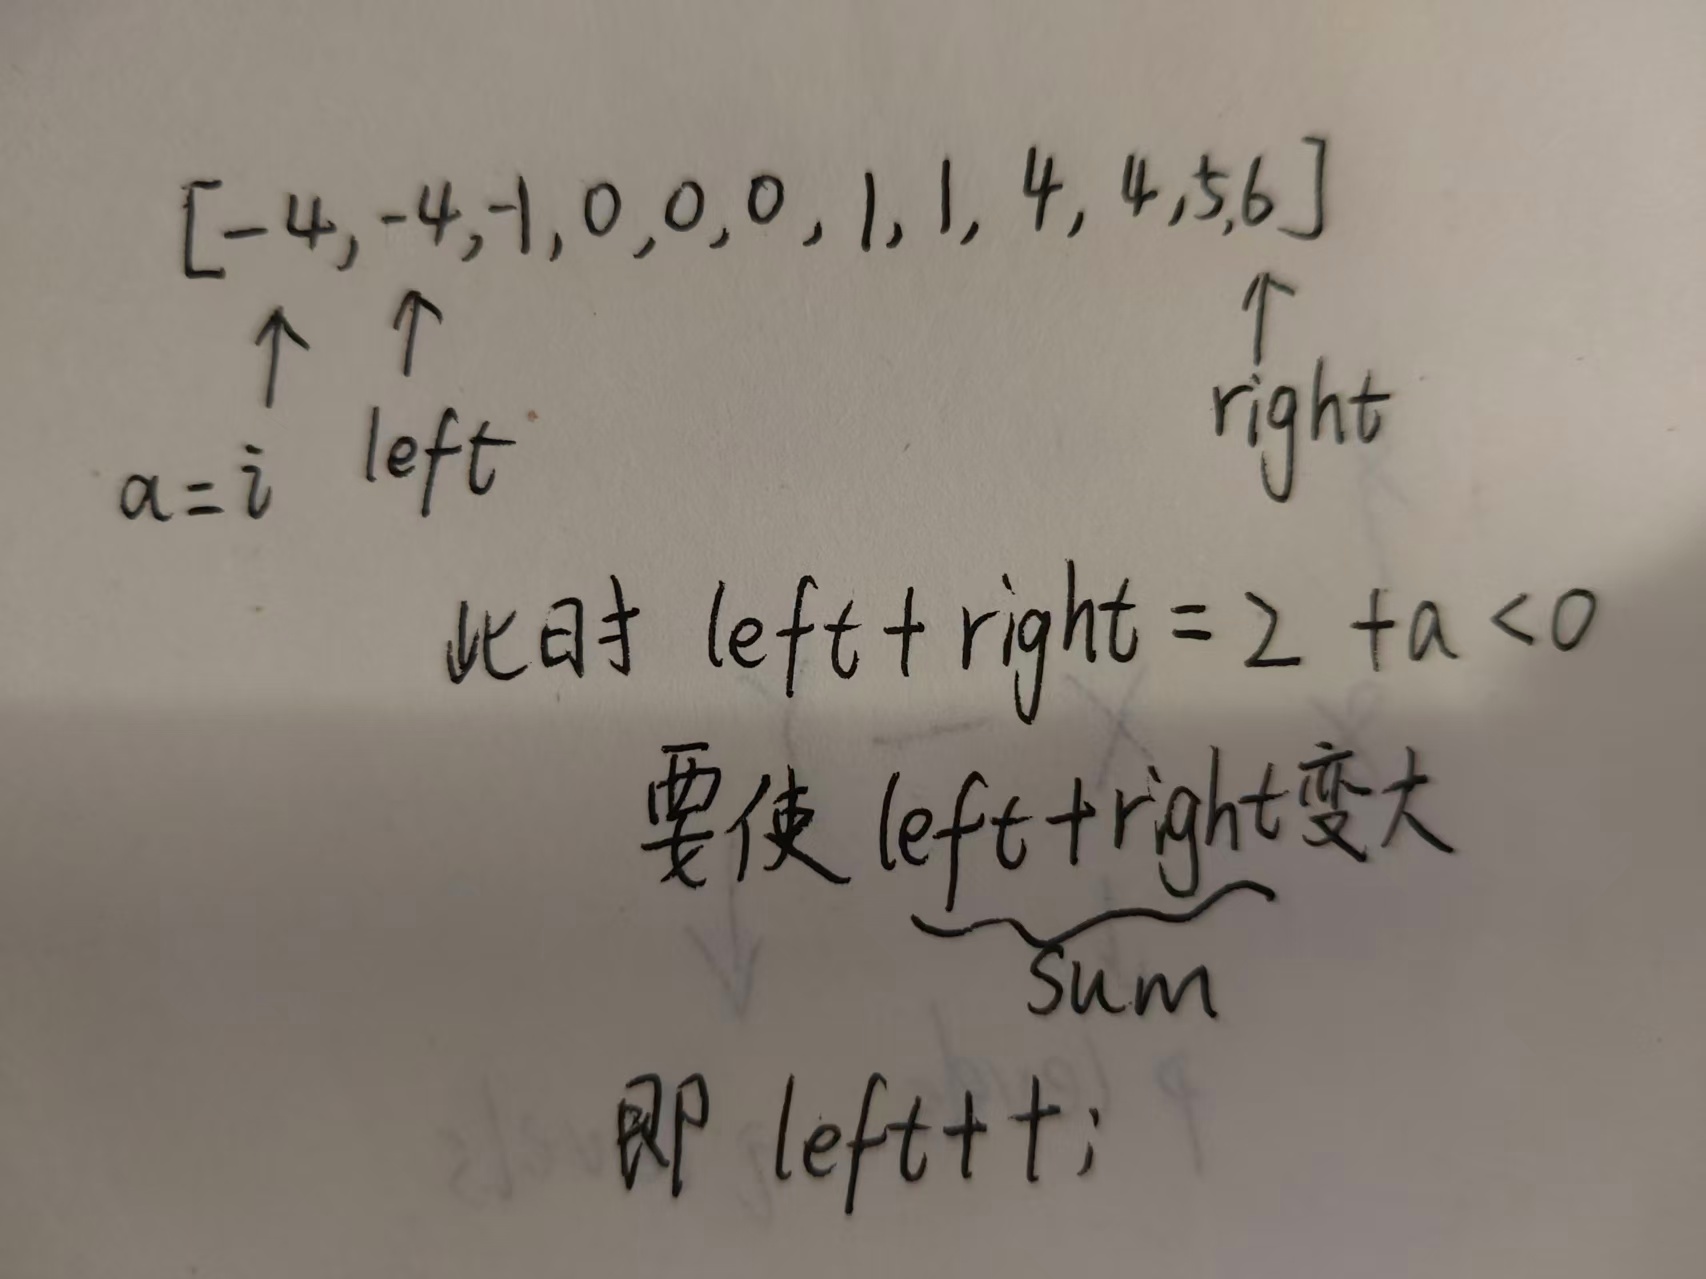 [-4,-4,-1,0,0,0,1,1,4,4,5,6]
↑ ↑ ↑
a=i left right
此时 left+right=2 +a<0
要使 left+right变大
sum
即 left++;